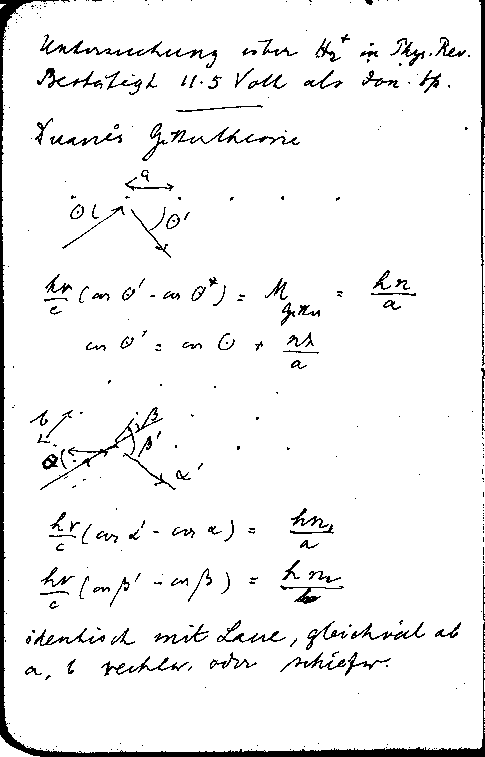 Untersuchung über H₂⁺ in Phys. Rev.
Bestätigt 11.5 Volt als Ion. sp.
Duane's Gittertheorie
a
Θ Θ'
hν/c (cos Θ' - cos Θ) = M Gitter = hn/a
cos Θ' = cos Θ + nλ/a
b β
β'
α α'
hν/c (cos α' - cos α) = hn₁/a
hν/c (cos β' - cos β) = hn₂/b
identisch mit Laue, gleichviel ob
a, b rechtw. oder schiefw.